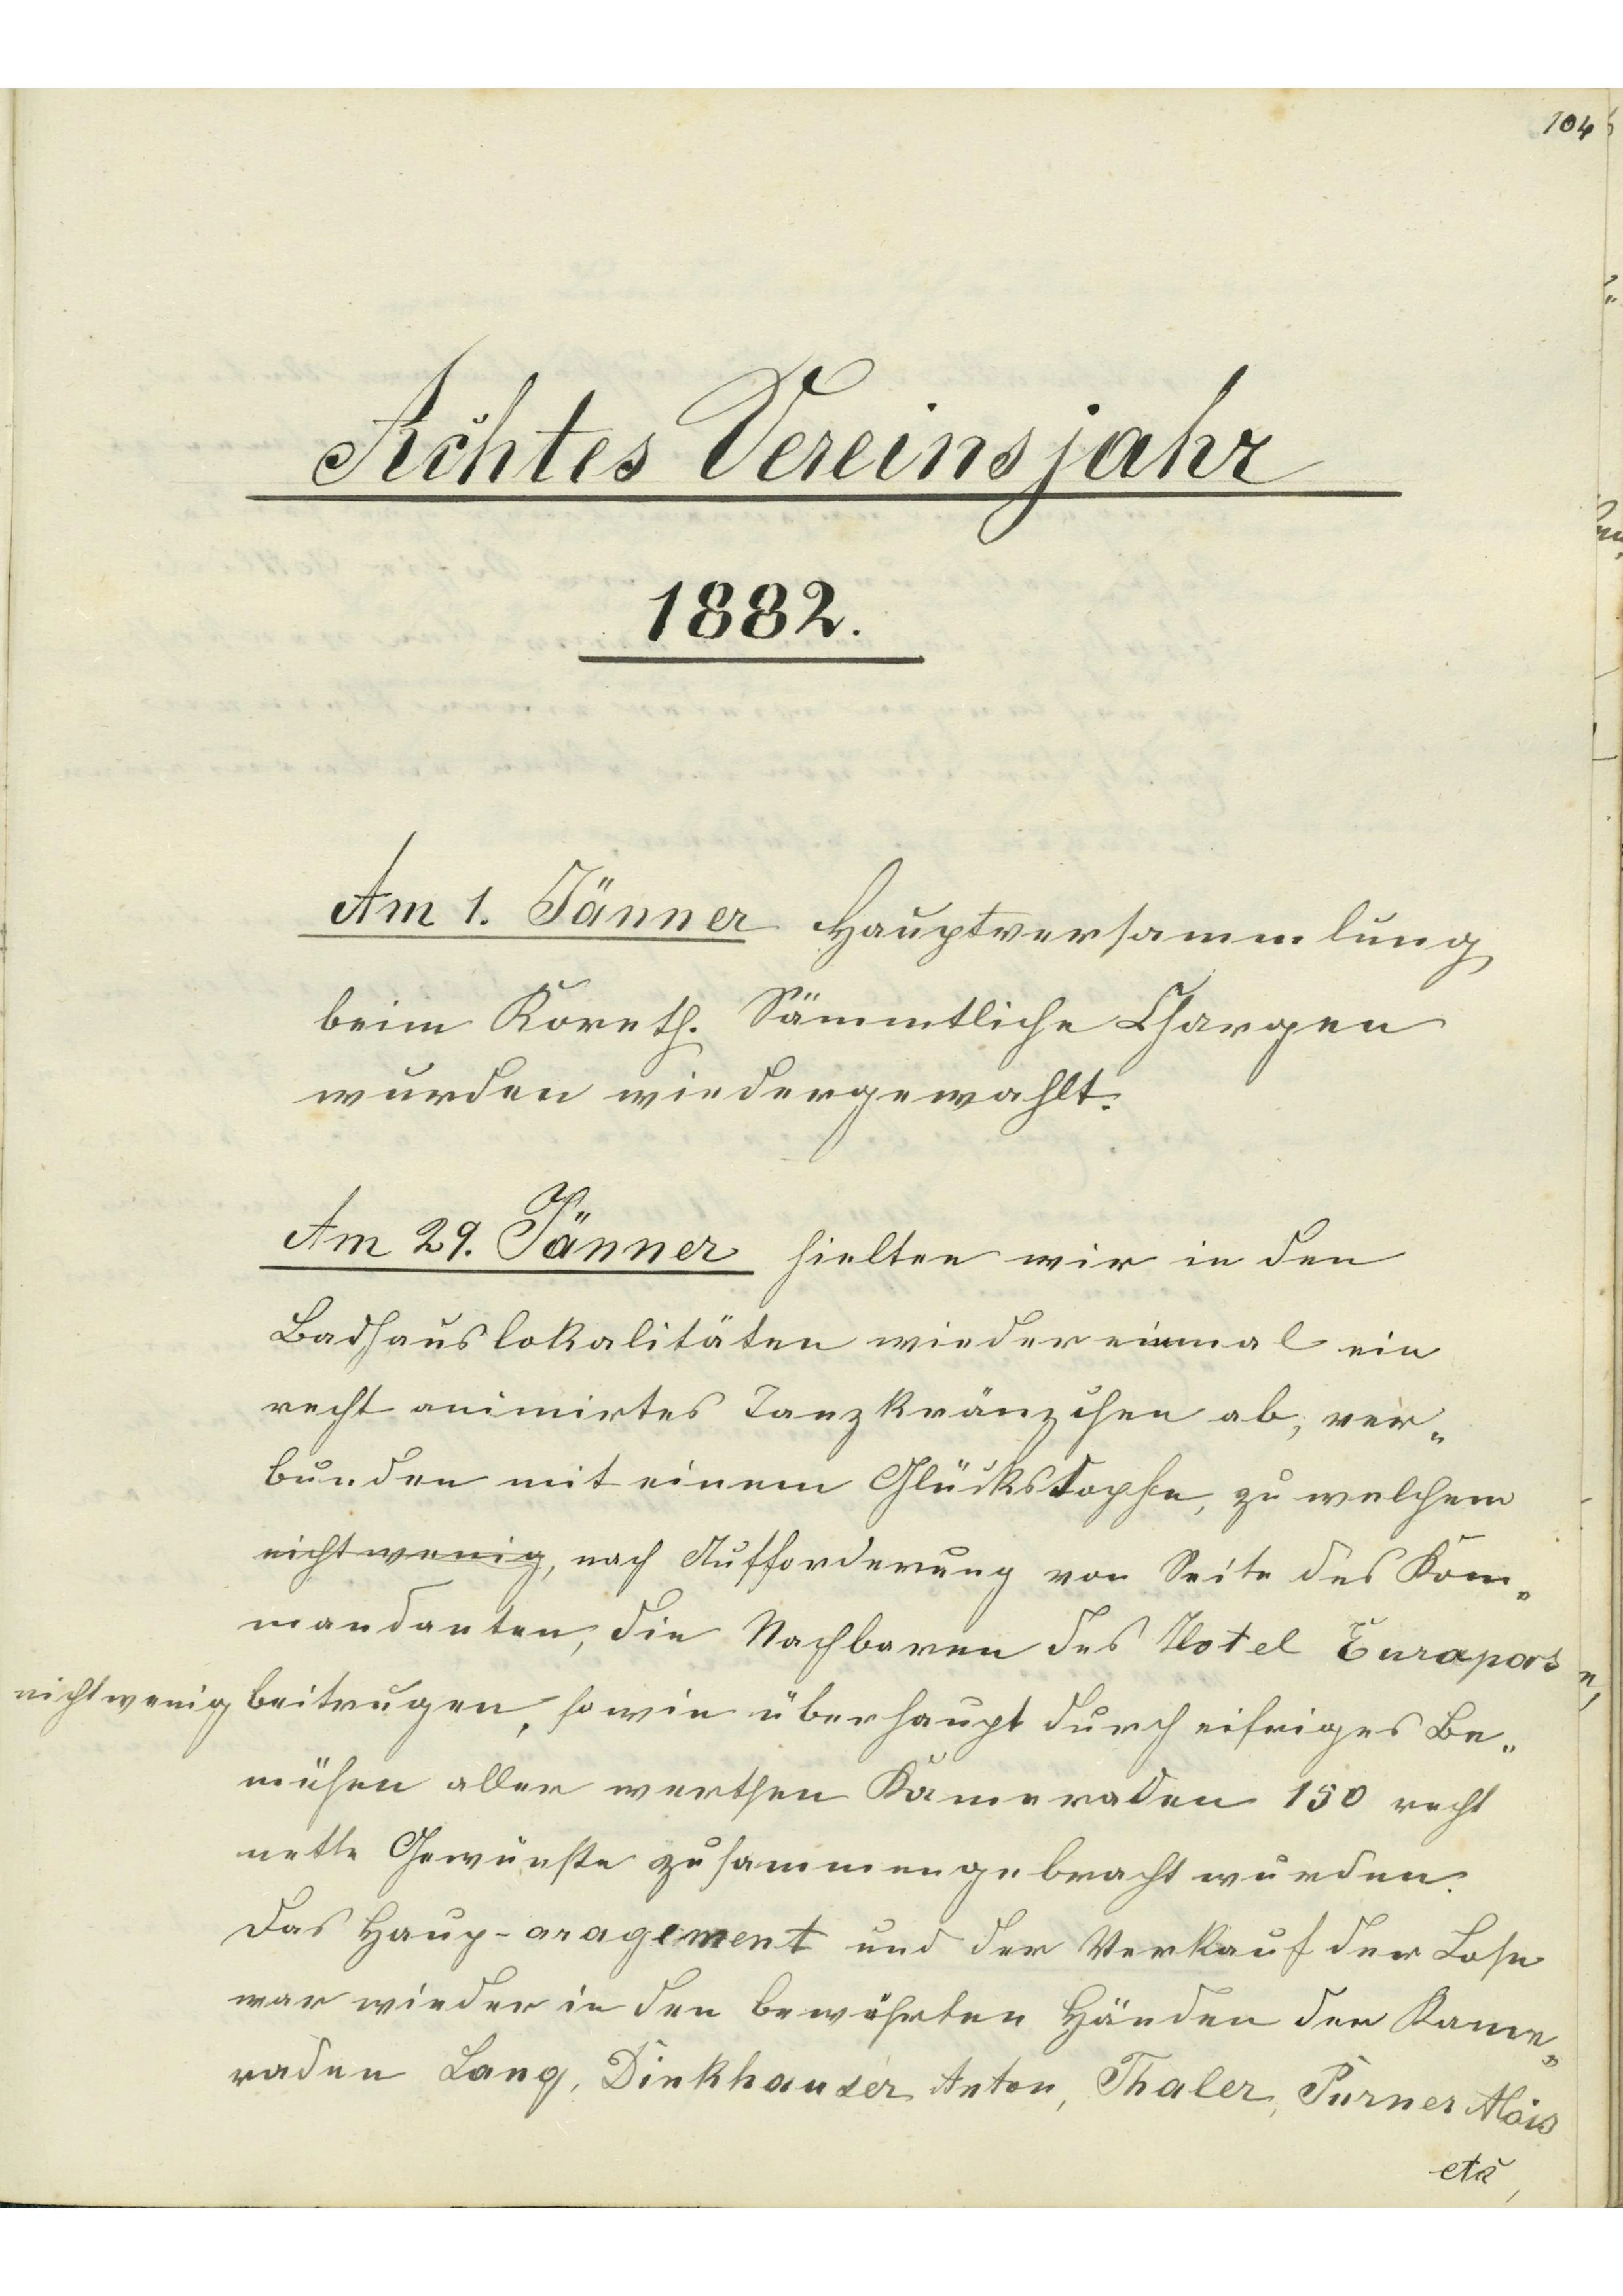 104
Achtes Vereinsjahr
1882.
Am 1. Jänner Hauptversammlung
beim Koreth. Sämmtliche Chargen
wurden wiedergewahlt.
Am 29. Jänner hielten wir in den
Badhauslokalitäten wieder einmal ein
recht animirtes Tanzkränzchen ab, ver„
bunden mit einem Glückstopfe, zu welchem
nicht wenig, nach Aufforderung von Seite des Kom„
mandanten, die Nachbaren des Hotel Europas
nicht wenig beitrugen, sowie überhaupt durch eifriges Be„
mühen aller werthen Kameraden 150 recht
nette Gewinste zusammengebracht wurden.
Das Haup-aragement und der Verkauf der Lose
war wieder in den bewährten Händen der Kame„
raden Lang, Dinkhauser Anton, Thaler, Purner Alois
etc,